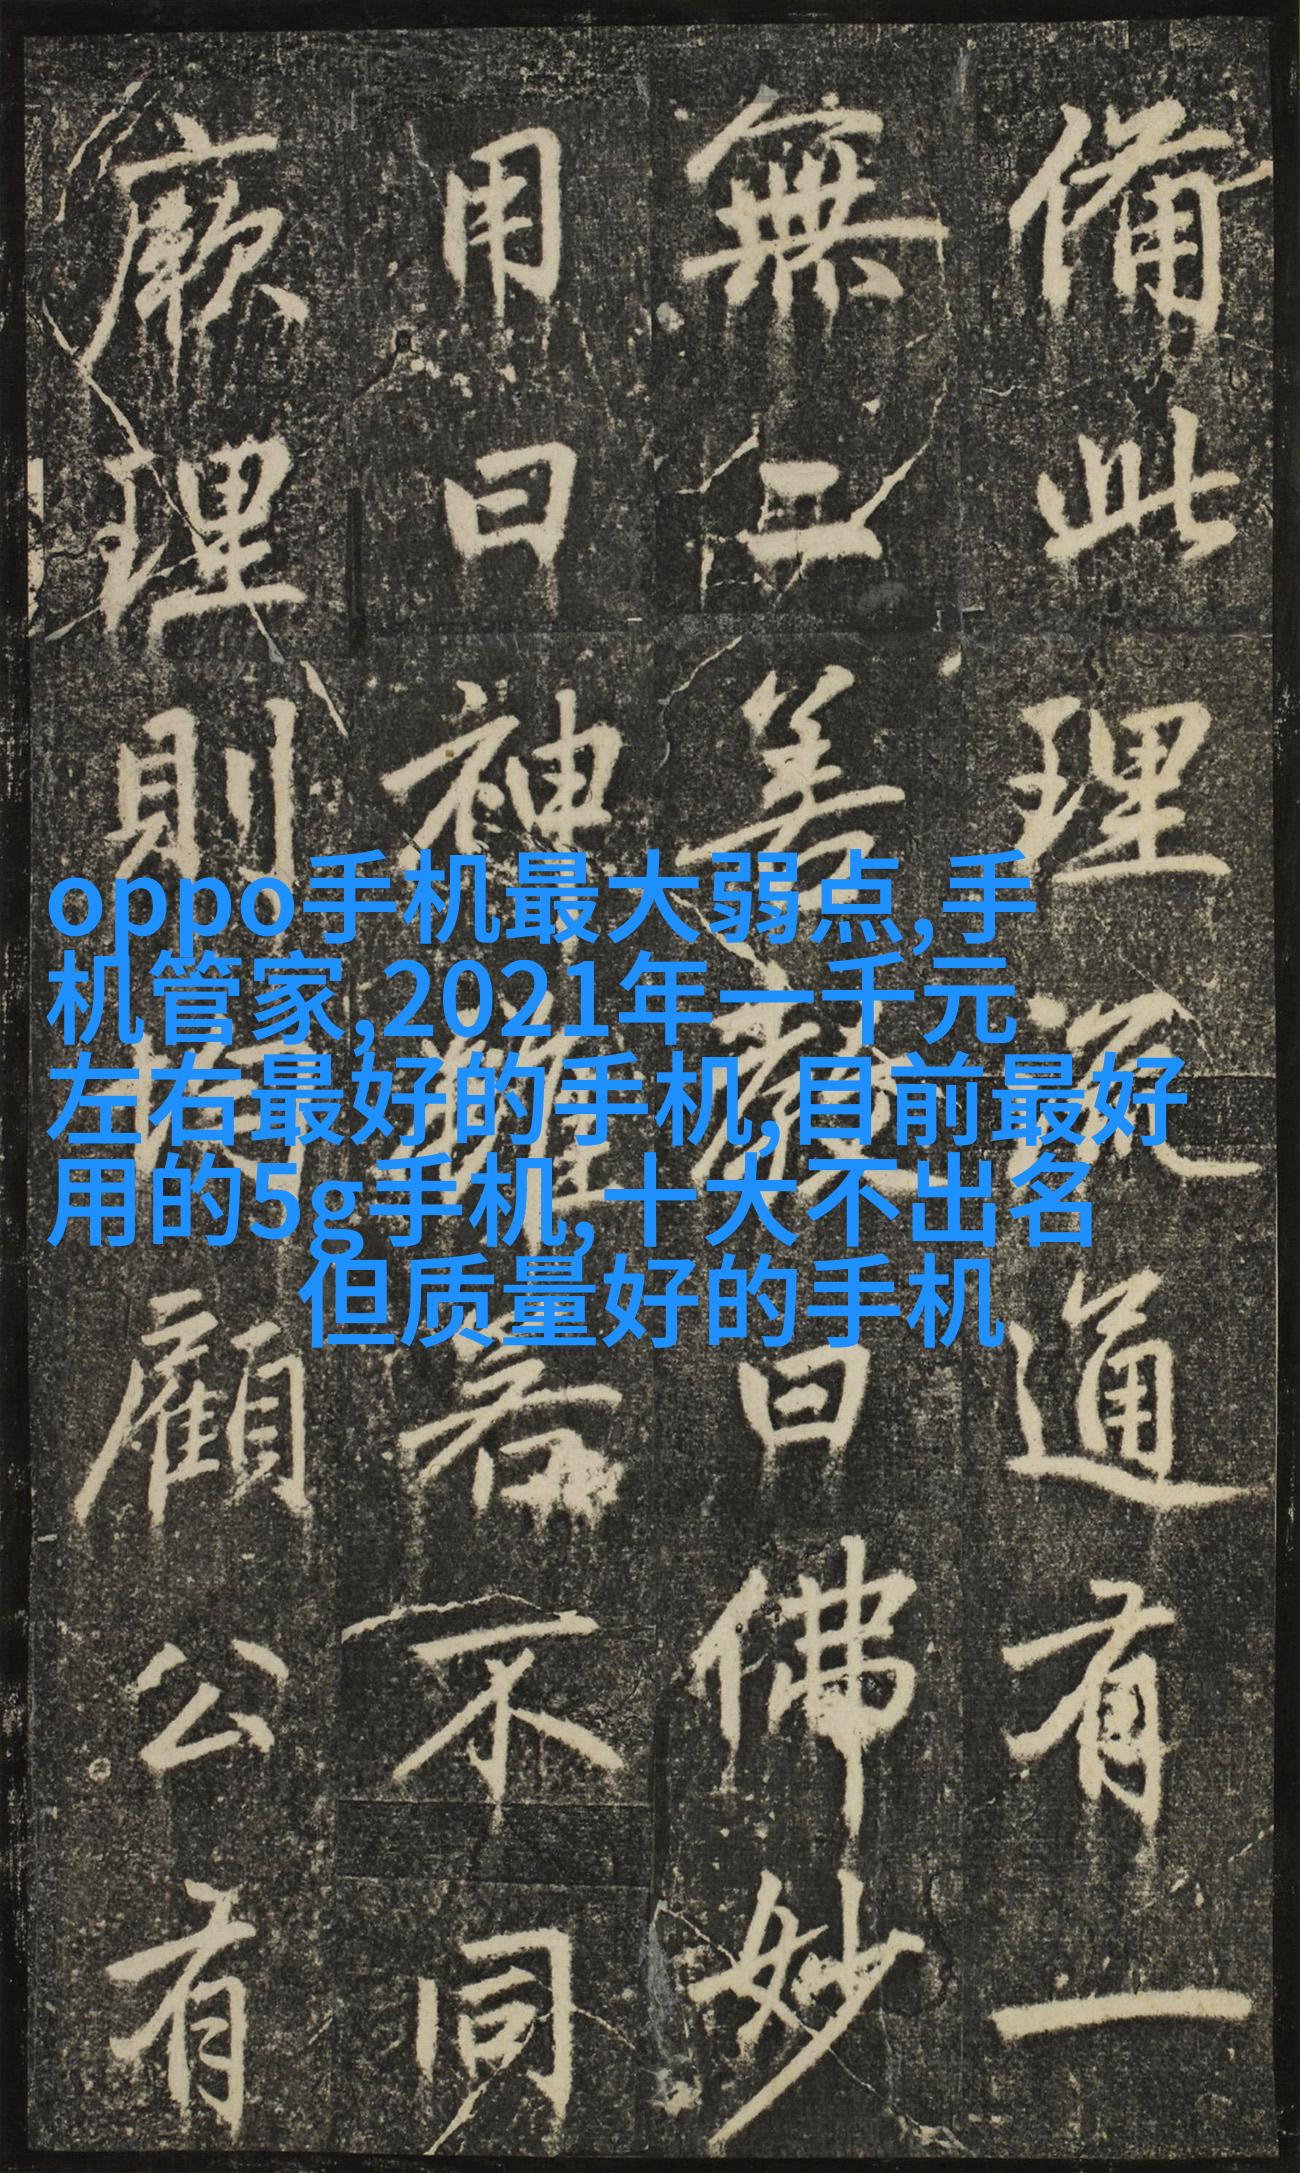 備此理通有一
無二善曰佛妙
用曰神雖若不同
厥理則顧公有
oppo手机最大弱点,手
机管家,2021年一千元
左右最好的手机,目前最好
用的5g手机,十大不出名
但质量好的手机